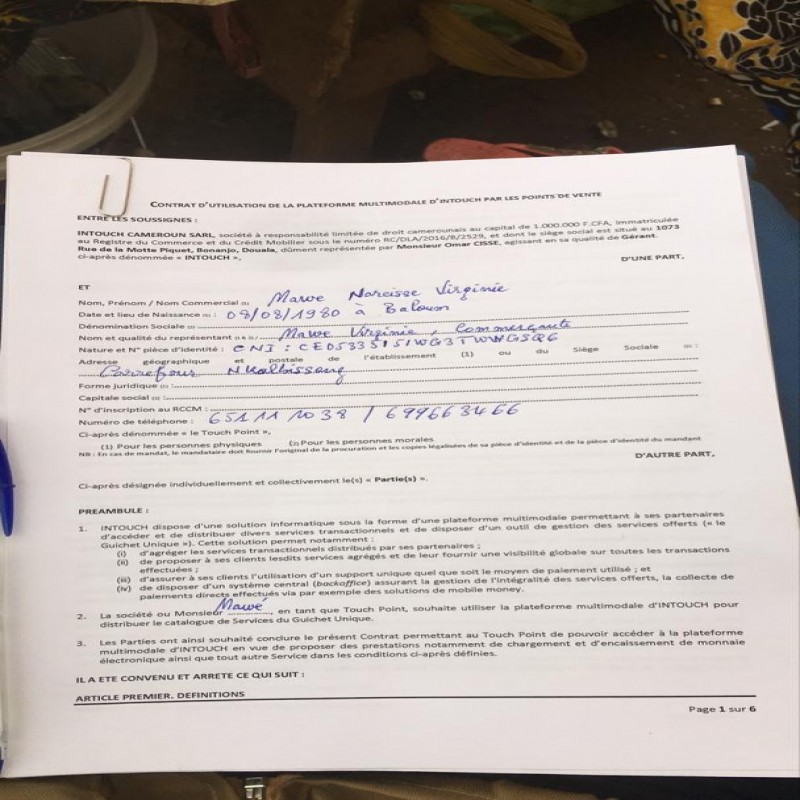 CONTRAT D'UTILISATION DE LA PLATEFORME MULTIMODALE D'INTOUCH PAR LES POINTS DE VENTE
ENTRE LES SOUSSIGNES :
INTOUCH CAMEROUN SARL, société à responsabilité limitée de droit camerounais au capital de 1.000.000 F.CFA, immatriculée
au Registre du Commerce et du Crédit Mobilier sous le numéro RC/DLA/2016/B/2529, et dont le siège social est situé au 1073
Rue de la Motte Piquet, Bonanjo, Douala, dûment représentée par Monsieur Omar CISSE, agissant en sa qualité de Gérant.
ci-après dénommée « INTOUCH »,
D'UNE PART,
ET
Nom, Prénom / Nom Commercial (1) Mawe Narcisse Virginie
Date et lieu de Naissance (1) : 08/08/1980 à Baloum
Dénomination Sociale (2)
Nom et qualité du représentant (1 & 2) Mawe Virginie, Commerçante
Nature et N° pièce d'identité : CNI :
Adresse géographique et postale de l'établissement (1) ou du Siège Sociale (2) :
Carrefour Nkolbissong
Forme juridique (2) :
Capitale social (2) :
N° d'inscription au RCCM :
Numéro de téléphone : 651 11 10 38 / 699663466
Ci-après dénommée « le Touch Point »,
(1) Pour les personnes physiques (2) Pour les personnes morales
NB : En cas de mandat, le mandataire doit fournir l'original de la procuration et les copies légalisées de sa pièce d'identité et de la pièce d'identité du mandant
D'AUTRE PART,
Ci-après désignée individuellement et collectivement le(s) « Partie(s) ».
PREAMBULE :
1. INTOUCH dispose d'une solution informatique sous la forme d'une plateforme multimodale permettant à ses partenaires
d'accéder et de distribuer divers services transactionnels et de disposer d'un outil de gestion des services offerts (« le
Guichet Unique »). Cette solution permet notamment :
(i) d'agréger les services transactionnels distribués par ses partenaires ;
(ii) de proposer à ses clients lesdits services agrégés et de leur fournir une visibilité globale sur toutes les transactions
effectuées ;
(iii) d'assurer à ses clients l'utilisation d'un support unique quel que soit le moyen de paiement utilisé ; et
(iv) de disposer d'un système central (backoffice) assurant la gestion de l'intégralité des services offerts, la collecte de
paiements directs effectués via par exemple des solutions de mobile money.
2. La société ou Monsieur Mawé, en tant que Touch Point, souhaite utiliser la plateforme multimodale d'INTOUCH pour
distribuer le catalogue de Services du Guichet Unique.
3. Les Parties ont ainsi souhaité conclure le présent Contrat permettant au Touch Point de pouvoir accéder à la plateforme
multimodale d'INTOUCH en vue de proposer des prestations notamment de chargement et d'encaissement de monnaie
électronique ainsi que tout autre Service dans les conditions ci-après définies.
IL A ETE CONVENU ET ARRETE CE QUI SUIT :
ARTICLE PREMIER. DEFINITIONS
Page 1 sur 6